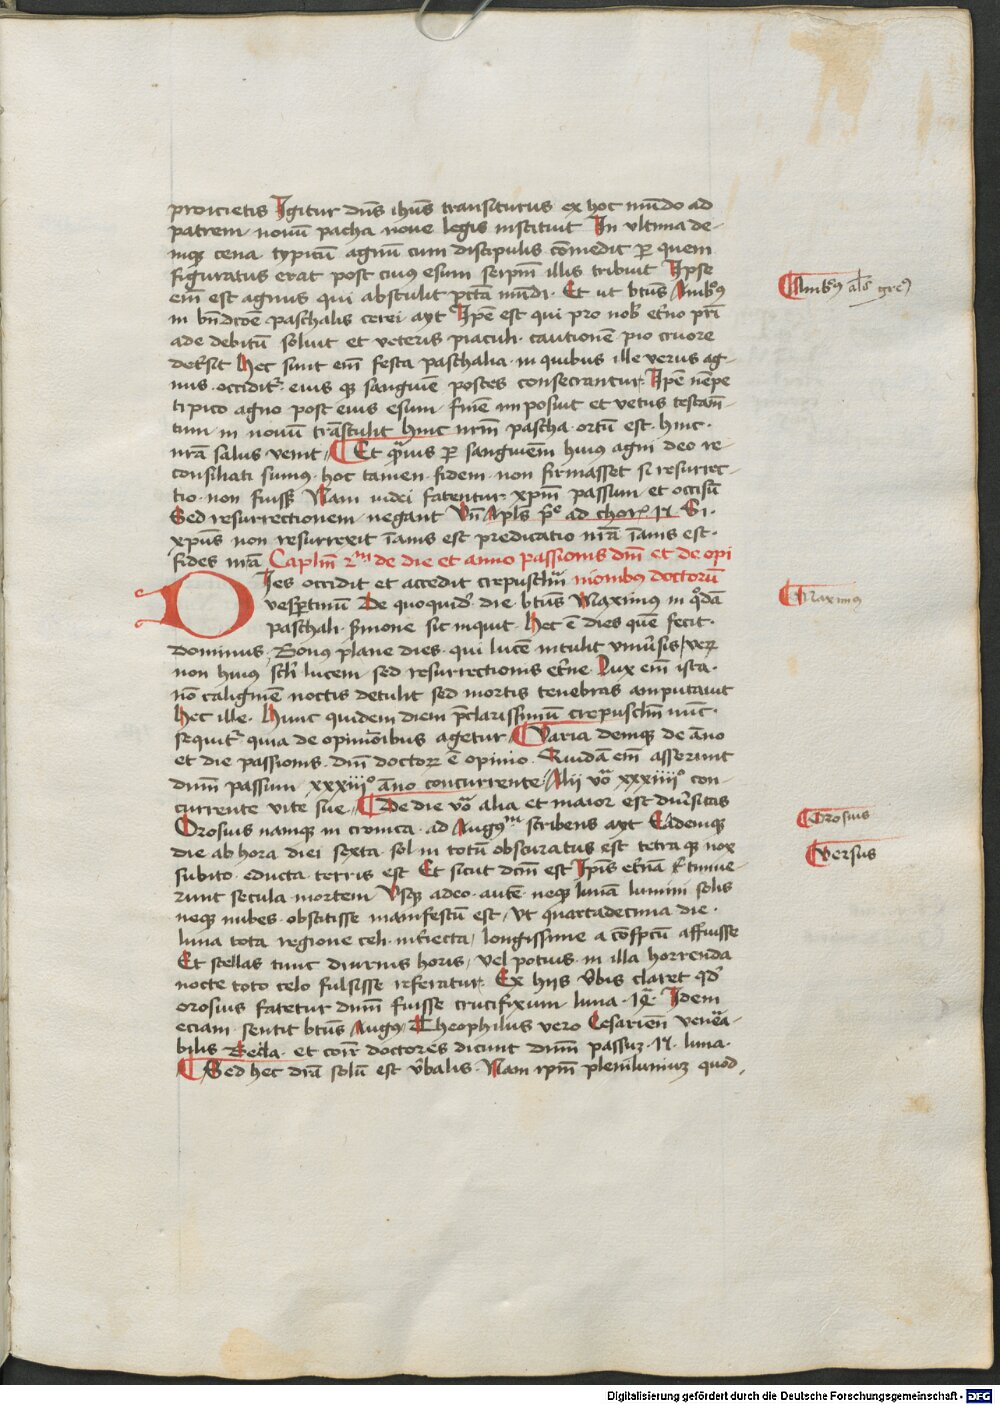 proicietis Igitur dns̄ ihūs transiturus ex hoc mūdo ad
patrem · nouū pacha noue legis instituit In vltima de-
inqꝫ cena typicū agnū cum discipulis cōmedit per quem
figuratus erat post cuius esum seipm̄ illis tribuit Ipse
em̄ est agnus qui abstulit pctā mūdi · Et ut btūs Ambꝰ
in bn̄dcōe paschalis cerei ayt Ipē est qui pro nob̄ et̄no pr̄i
ade debitū soluit et veteris piaculi · cautionē pio cruore
det̄sit Hec sunt em̄ festa paschalia · in quibus ille verus ag-
nus · occidit᷑ · eius qꝫ sanguīe postes consecrantur · Ipē nēpe
tipico agno post eius esum · finē imposuit et vetus testam̄-
tum · in nouū trāstulit hinc nrm̄ pascha · ortū est · hinc ·
nrā salus venit · Et qͣuis per sanguinem̄ huius agni deo re-
consiliati sumus · hoc tamen · fidem · non firmasset si resurrec-
tio · non fuisſꝫ Nam iudei fatentur xpm̄ passum et occisū
Sed resurrectionem · negant Vn̄ Apl̄s pͦ ad choꝝ 15 Si ·
xpūs non resurrexit īanis est predicatio nr̄a īanis est ·
fides nr̄a Caplm̄ 2m de die et anno passionis dn̄i et de opi
Dies occidit et accedit crepusclm̄ nionibus doctorū
vesp̄tinū De quoquid᷑ · die btūs Maximus in qͦdā
paschali · s̄mone sic inquit · Hec ē dies quē fecit ·
dominus · Bonus plane dies · qui lucē intulit vniūsis / veꝝ
non huius scl̄i lucem · sed resurrectionis et̄ne · Lux em̄ ista ·
nō caliginē noctis detulit sed mortis tenebras amputauit
Hec ille · Hunc quidem diem p̄clarissimū crepusclm̄ nūc ·
sequit᷑ quia de opinionibus agetur · Varia deinqꝫ de āno
et die passionis · dn̄i doctoꝝ ē opinio · Quidam em̄ asserunt
dnm̄ passum · xxxiijº āno concurrente / Alij vͦo xxxiiijº con-
currente vite sue · De die vͦo alia et maior est diūsitas
Orosius namqꝫ in cronica · ad Augꝰm scribens ayt Eadēqꝫ
die ab hora diei sexta · sol in totū obscuratus est tetra qꝫ nox
subito · educta terris est Et sicut dcm̄ est Impīs et̄nā timue-
runt secula mortem Vsqꝫ adeo · autē · neqꝫ lunā lumini solis
neqꝫ nubes · obstitisse manifestū est / vt quartadecima die ·
luna tota regione celi · intiecta / longissime a cōspcū affuisse
Et stellas tunc diurnis horis / vel potius · in illa horrenda
nocte toto celo fulsisse referatur · Ex hijs v̄bis claret qd᷑
orosius fatetur dnm̄ fuisse crucifixum · luna · 14ͣ · Idem
eciam · sentit btūs Augꝰ / Theophilus vero Cesarien̄ venēa-
bilis Beda · et coīr doctores dicunt dnm̄ passuꝫ · 15 · luna ·
Sed hec drā solū est v̄balis · Nam ipm̄ pleniluniuꝫ quod
Ambꝰ al̄s grēꝰ
Maximus
Orosius
versus
Digitalisierung gefördert durch die Deutsche Forschungsgemeinschaft - DFG